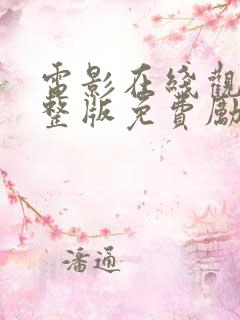 電影在綫觀
整版免費勵
潘通